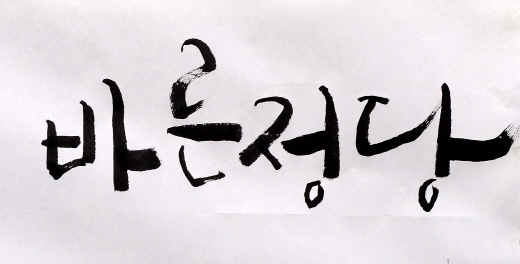 바른정당